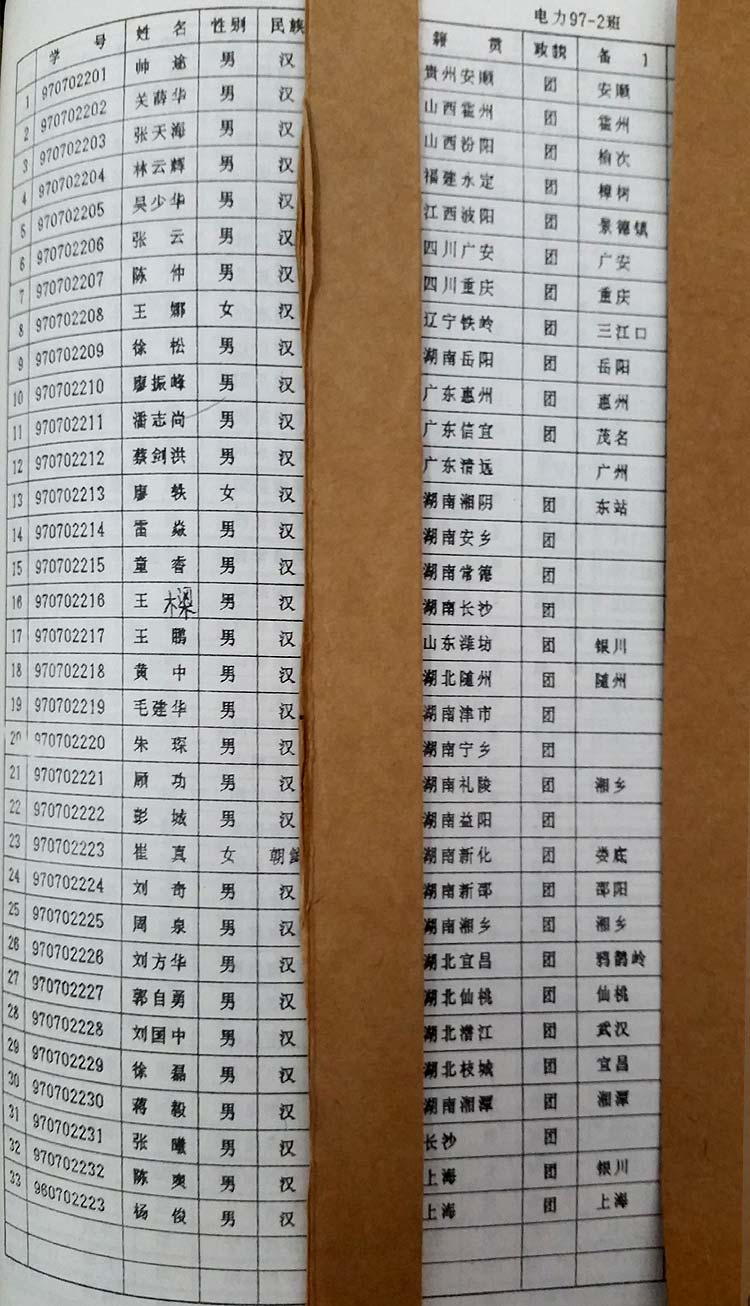 电力97-2班
学 号 姓 名 性别 民族 籍 贯 政貌 备 1
1 970702201 帅 途 男 汉 贵州安顺 团 安顺
2 970702202 关薛华 男 汉 山西霍州 团 霍州
3 970702203 张天海 男 汉 山西汾阳 团 榆次
4 970702204 林云辉 男 汉 福建永定 团 樟树
5 970702205 吴少华 男 汉 江西波阳 团 景德镇
6 970702206 张 云 男 汉 四川广安 团 广安
7 970702207 陈 仲 男 汉 四川重庆 团 重庆
8 970702208 王 娜 女 汉 辽宁铁岭 团 三江口
9 970702209 徐 松 男 汉 湖南岳阳 团 岳阳
10 970702210 廖振峰 男 汉 广东惠州 团 惠州
11 970702211 潘志尚 男 汉 广东信宜 团 茂名
12 970702212 蔡剑洪 男 汉 广东清远 广州
13 970702213 廖 轶 女 汉 湖南湘阴 团 东站
14 970702214 雷 焱 男 汉 湖南安乡 团
15 970702215 童 睿 男 汉 湖南常德 团
16 970702216 王 樑 男 汉 湖南长沙 团
17 970702217 王 鹏 男 汉 山东潍坊 团 银川
18 970702218 黄 中 男 汉 湖北随州 团 随州
19 970702219 毛建华 男 汉 湖南津市 团
20 970702220 朱 琛 男 汉 湖南宁乡 团
21 970702221 顾 功 男 汉 湖南礼陵 团 湘乡
22 970702222 彭 城 男 汉 湖南益阳 团
23 970702223 崔 真 女 朝鲜 湖南新化 团 娄底
24 970702224 刘 奇 男 汉 湖南新邵 团 邵阳
25 970702225 周 泉 男 汉 湖南湘乡 团 湘乡
26 970702226 刘方华 男 汉 湖北宜昌 团 鸦鹊岭
27 970702227 郭自勇 男 汉 湖北仙桃 团 仙桃
28 970702228 刘国中 男 汉 湖北潜江 团 武汉
29 970702229 徐 磊 男 汉 湖北枝城 团 宜昌
30 970702230 蒋 毅 男 汉 湖南湘潭 团 湘潭
31 970702231 张 曦 男 汉 长沙 团
32 970702232 陈 爽 男 汉 上海 团 银川
33 960702223 杨 俊 男 汉 上海 团 上海